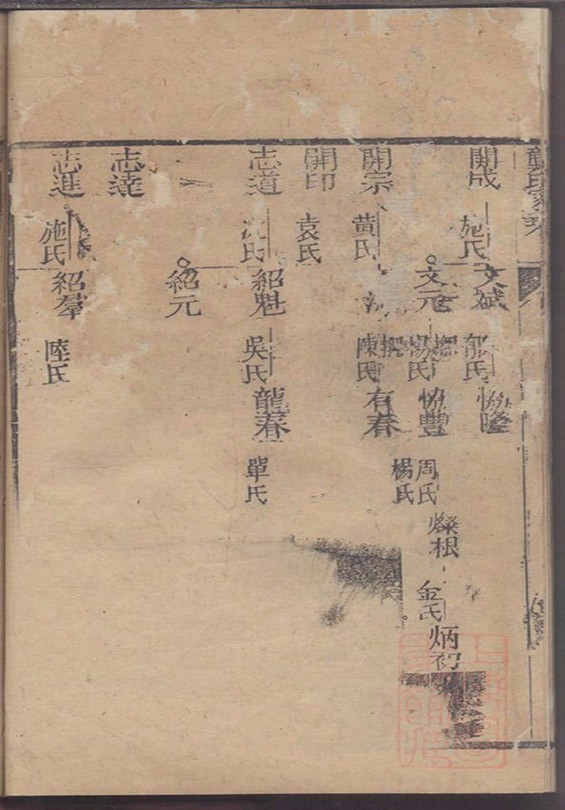 開成
施氏
文斌
郁氏
文元
楊氏
協豐
周氏
楊氏
燦根
金氏
炳初
開宗
黄氏
陳氏
有春
開印
袁氏
志道
沈氏
紹魁
吳氏
龍春
單氏
紹元
志達
志進
施氏
紹羣
陸氏